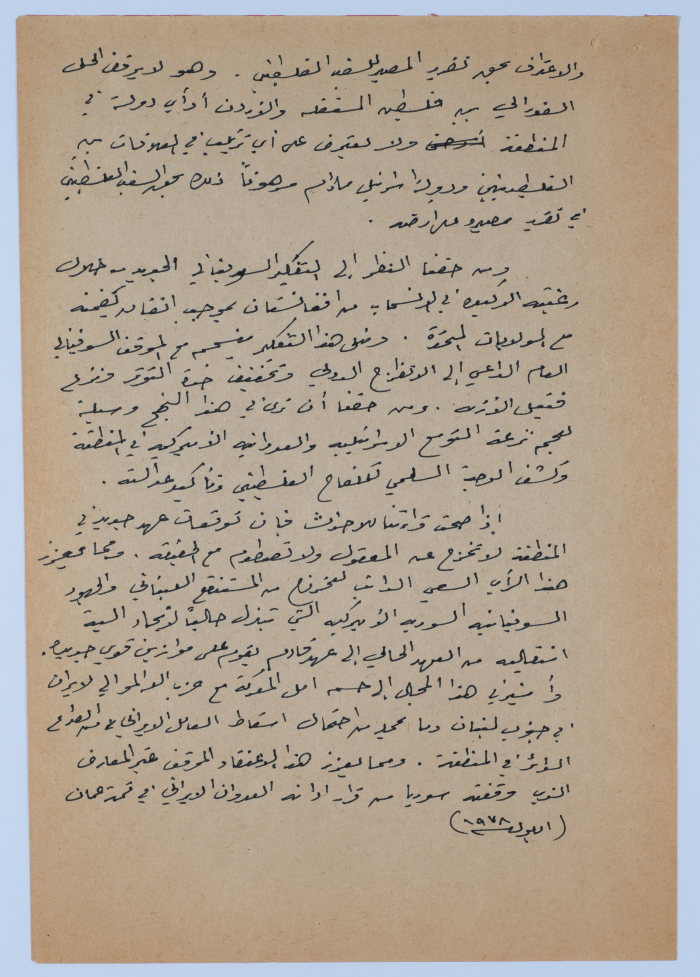 والاعتراف بحق تقرير المصير للشعب الفلسطيني . وهو لا يرفض الحل
الفدرالي بين فلسطين المستقلة والأردن أو أي دولة في
المنطقة ولا يعترض على أي ترتيب في العلاقات بين
الفلسطينيين ودولة اسرائيل مادام مرهوناً ذلك بحق الشعب الفلسطيني
في تقرير مصيره على ارضه .
ومن حقنا النظر إلى التفكير السوفياتي الجديد من خلال
رغبته الأكيدة في الانسحاب من افغانستان بموجب اتفاق
مع الولايات المتحدة . ومثل هذا التفكير ينسجم مع الموقف السوفياتي
العام الداعي إلى الانفراج الدولي وتخفيف حدة التوتر ونزع
فتيل الأزمة . ومن حقنا أن نرى في هذا النهج وسيلة
للجم نزعة التوسع الاسرائيلية والعدوانية الأميركية في المنطقة
وكشف الوجه السلمي للكفاح الفلسطيني وتأكيد عدالته .
إذا صحت قراءتنا للأحداث فإن توقعات عهد جديد في
المنطقة لا تخرج عن المعقول ولا تصطدم مع الحقيقة . ومما يعزز
هذا الرأي السعي الدائب للخروج من المستنقع اللبناني والجهود
السوفياتية السورية الأميركية التي تبذل حالياً لإيجاد آلية
انتقالية من العهد الحالي إلى عهد قادم يقوم على موازين قوى جديدة .
وأشير في هذا المجال إلى حسم امل المعركة مع حزب الله الموالي لايران
في جنوب لبنان وما يحمله من احتمال اسقاط العامل الايراني من الصراع
الدائر في المنطقة . ومما يعزز هذا الاعتقاد الموقف غير المعارض
الذي وقفته سوريا من قرار ادانة العدوان الايراني في قمة عمان